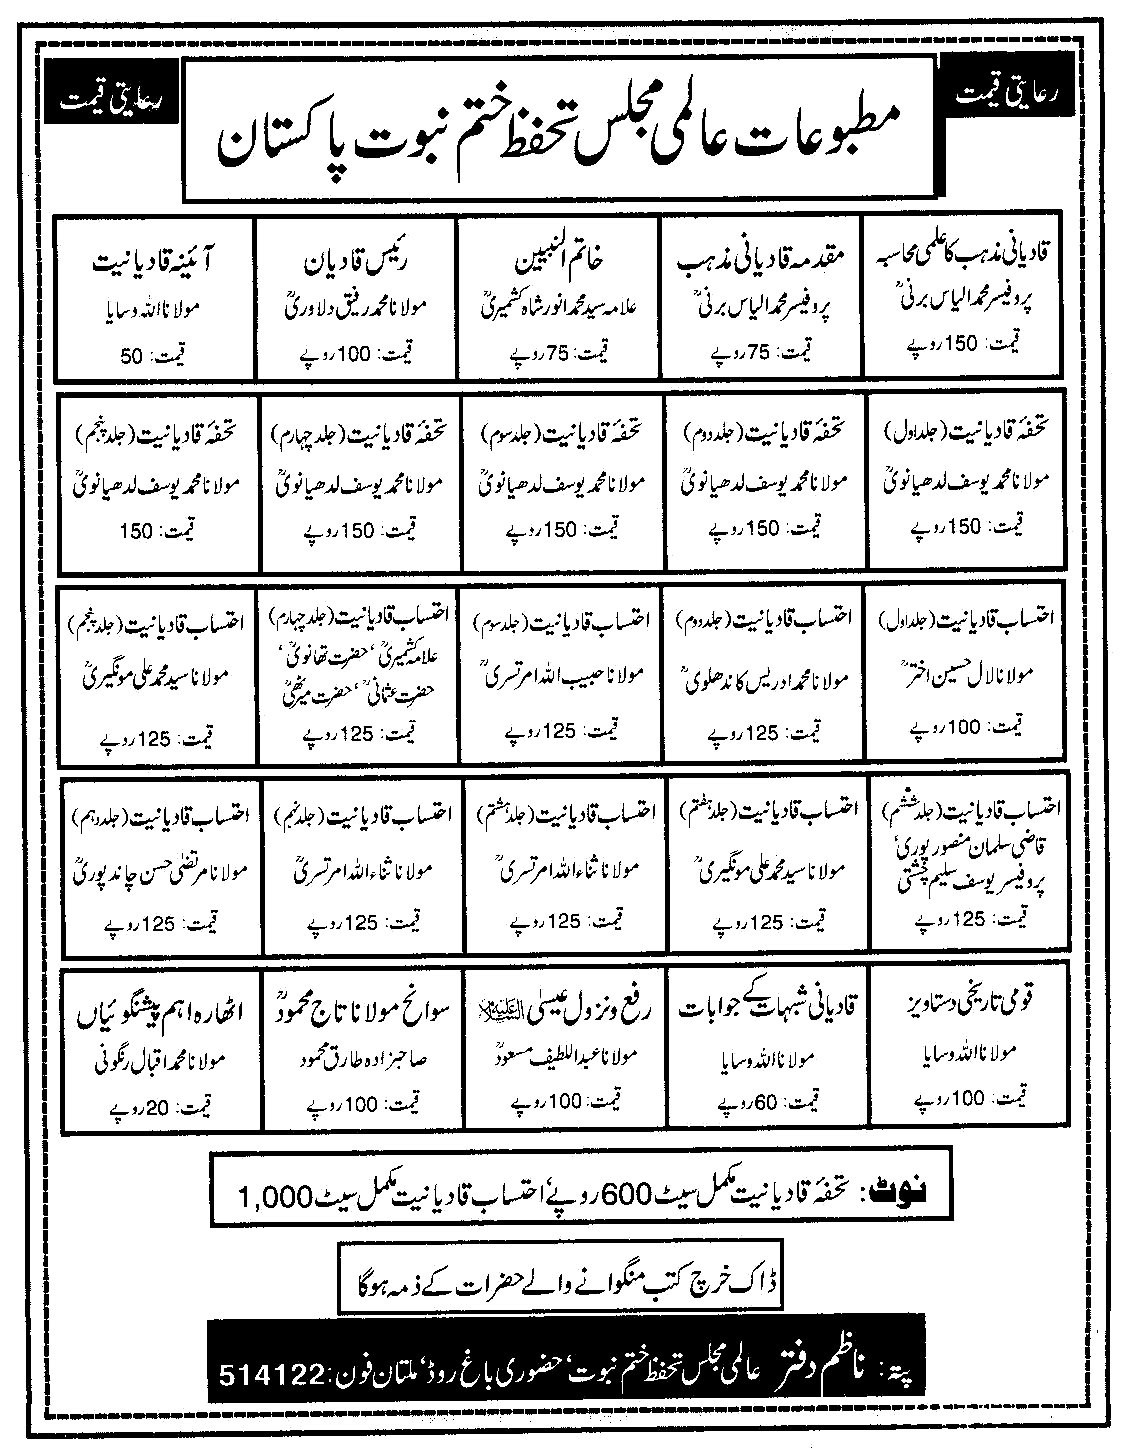 رعایتی قیمت
مطبوعات عالمی مجلس تحفظ ختم نبوت پاکستان
رعایتی قیمت
قادیانی مذہب کا علمی محاسبہ
پروفیسر محمد الیاس برنیؒ
قیمت: 150 روپے
مقدمہ قادیانی مذہب
پروفیسر محمد الیاس برنیؒ
قیمت: 75 روپے
خاتم النبیین
علامہ سید محمد انور شاہ کشمیریؒ
قیمت: 75 روپے
رئیس قادیان
مولانا محمد رفیق دلاوریؒ
قیمت: 100 روپے
آئینہ قادیانیت
مولانا اللہ وسایا
قیمت: 50
تحفۂ قادیانیت (جلد اول)
مولانا محمد یوسف لدھیانویؒ
قیمت: 150 روپے
تحفۂ قادیانیت (جلد دوم)
مولانا محمد یوسف لدھیانویؒ
قیمت: 150 روپے
تحفۂ قادیانیت (جلد سوم)
مولانا محمد یوسف لدھیانویؒ
قیمت: 150 روپے
تحفۂ قادیانیت (جلد چہارم)
مولانا محمد یوسف لدھیانویؒ
قیمت: 150 روپے
تحفۂ قادیانیت (جلد پنجم)
مولانا محمد یوسف لدھیانویؒ
قیمت: 150
احتساب قادیانیت (جلد اول)
مولانا لال حسین اخترؒ
قیمت: 100 روپے
احتساب قادیانیت (جلد دوم)
مولانا محمد ادریس کاندھلویؒ
قیمت: 125 روپے
احتساب قادیانیت (جلد سوم)
مولانا حبیب اللہ امرتسریؒ
قیمت: 125 روپے
احتساب قادیانیت (جلد چہارم)
علامہ کشمیریؒ، حضرت تھانویؒ،
حضرت عثمانیؒ، حضرت میرٹھیؒ
قیمت: 125 روپے
احتساب قادیانیت (جلد پنجم)
مولانا سید محمد علی مونگیریؒ
قیمت: 125 روپے
احتساب قادیانیت (جلد ششم)
قاضی سلمان منصور پوریؒ،
پروفیسر یوسف سلیم چشتیؒ
قیمت: 125 روپے
احتساب قادیانیت (جلد ہفتم)
مولانا سید محمد علی مونگیریؒ
قیمت: 125 روپے
احتساب قادیانیت (جلد ہشتم)
مولانا ثناء اللہ امرتسریؒ
قیمت: 125 روپے
احتساب قادیانیت (جلد نہم)
مولانا ثناء اللہ امرتسریؒ
قیمت: 125 روپے
احتساب قادیانیت (جلد دہم)
مولانا مرتضیٰ حسن چاند پوریؒ
قیمت: 125 روپے
قومی تاریخی دستاویز
مولانا اللہ وسایا
قیمت: 100 روپے
قادیانی شبہات کے جوابات
مولانا اللہ وسایا
قیمت: 60 روپے
رفع و نزول عیسیٰ علیہ السلام
مولانا عبداللطیف مسعودؒ
قیمت: 100 روپے
سوانح مولانا تاج محمودؒ
صاحبزادہ طارق محمود
قیمت: 100 روپے
اٹھارہ اہم پیشنگوئیاں
مولانا محمد اقبال رنگونی
قیمت: 20 روپے
نوٹ: تحفۂ قادیانیت مکمل سیٹ 600 روپے، احتساب قادیانیت مکمل سیٹ 1,000
ڈاک خرچ کتب منگوانے والے حضرات کے ذمہ ہوگا
پتہ: ناظم دفتر عالمی مجلس تحفظ ختم نبوت، حضوری باغ روڈ، ملتان فون: 514122